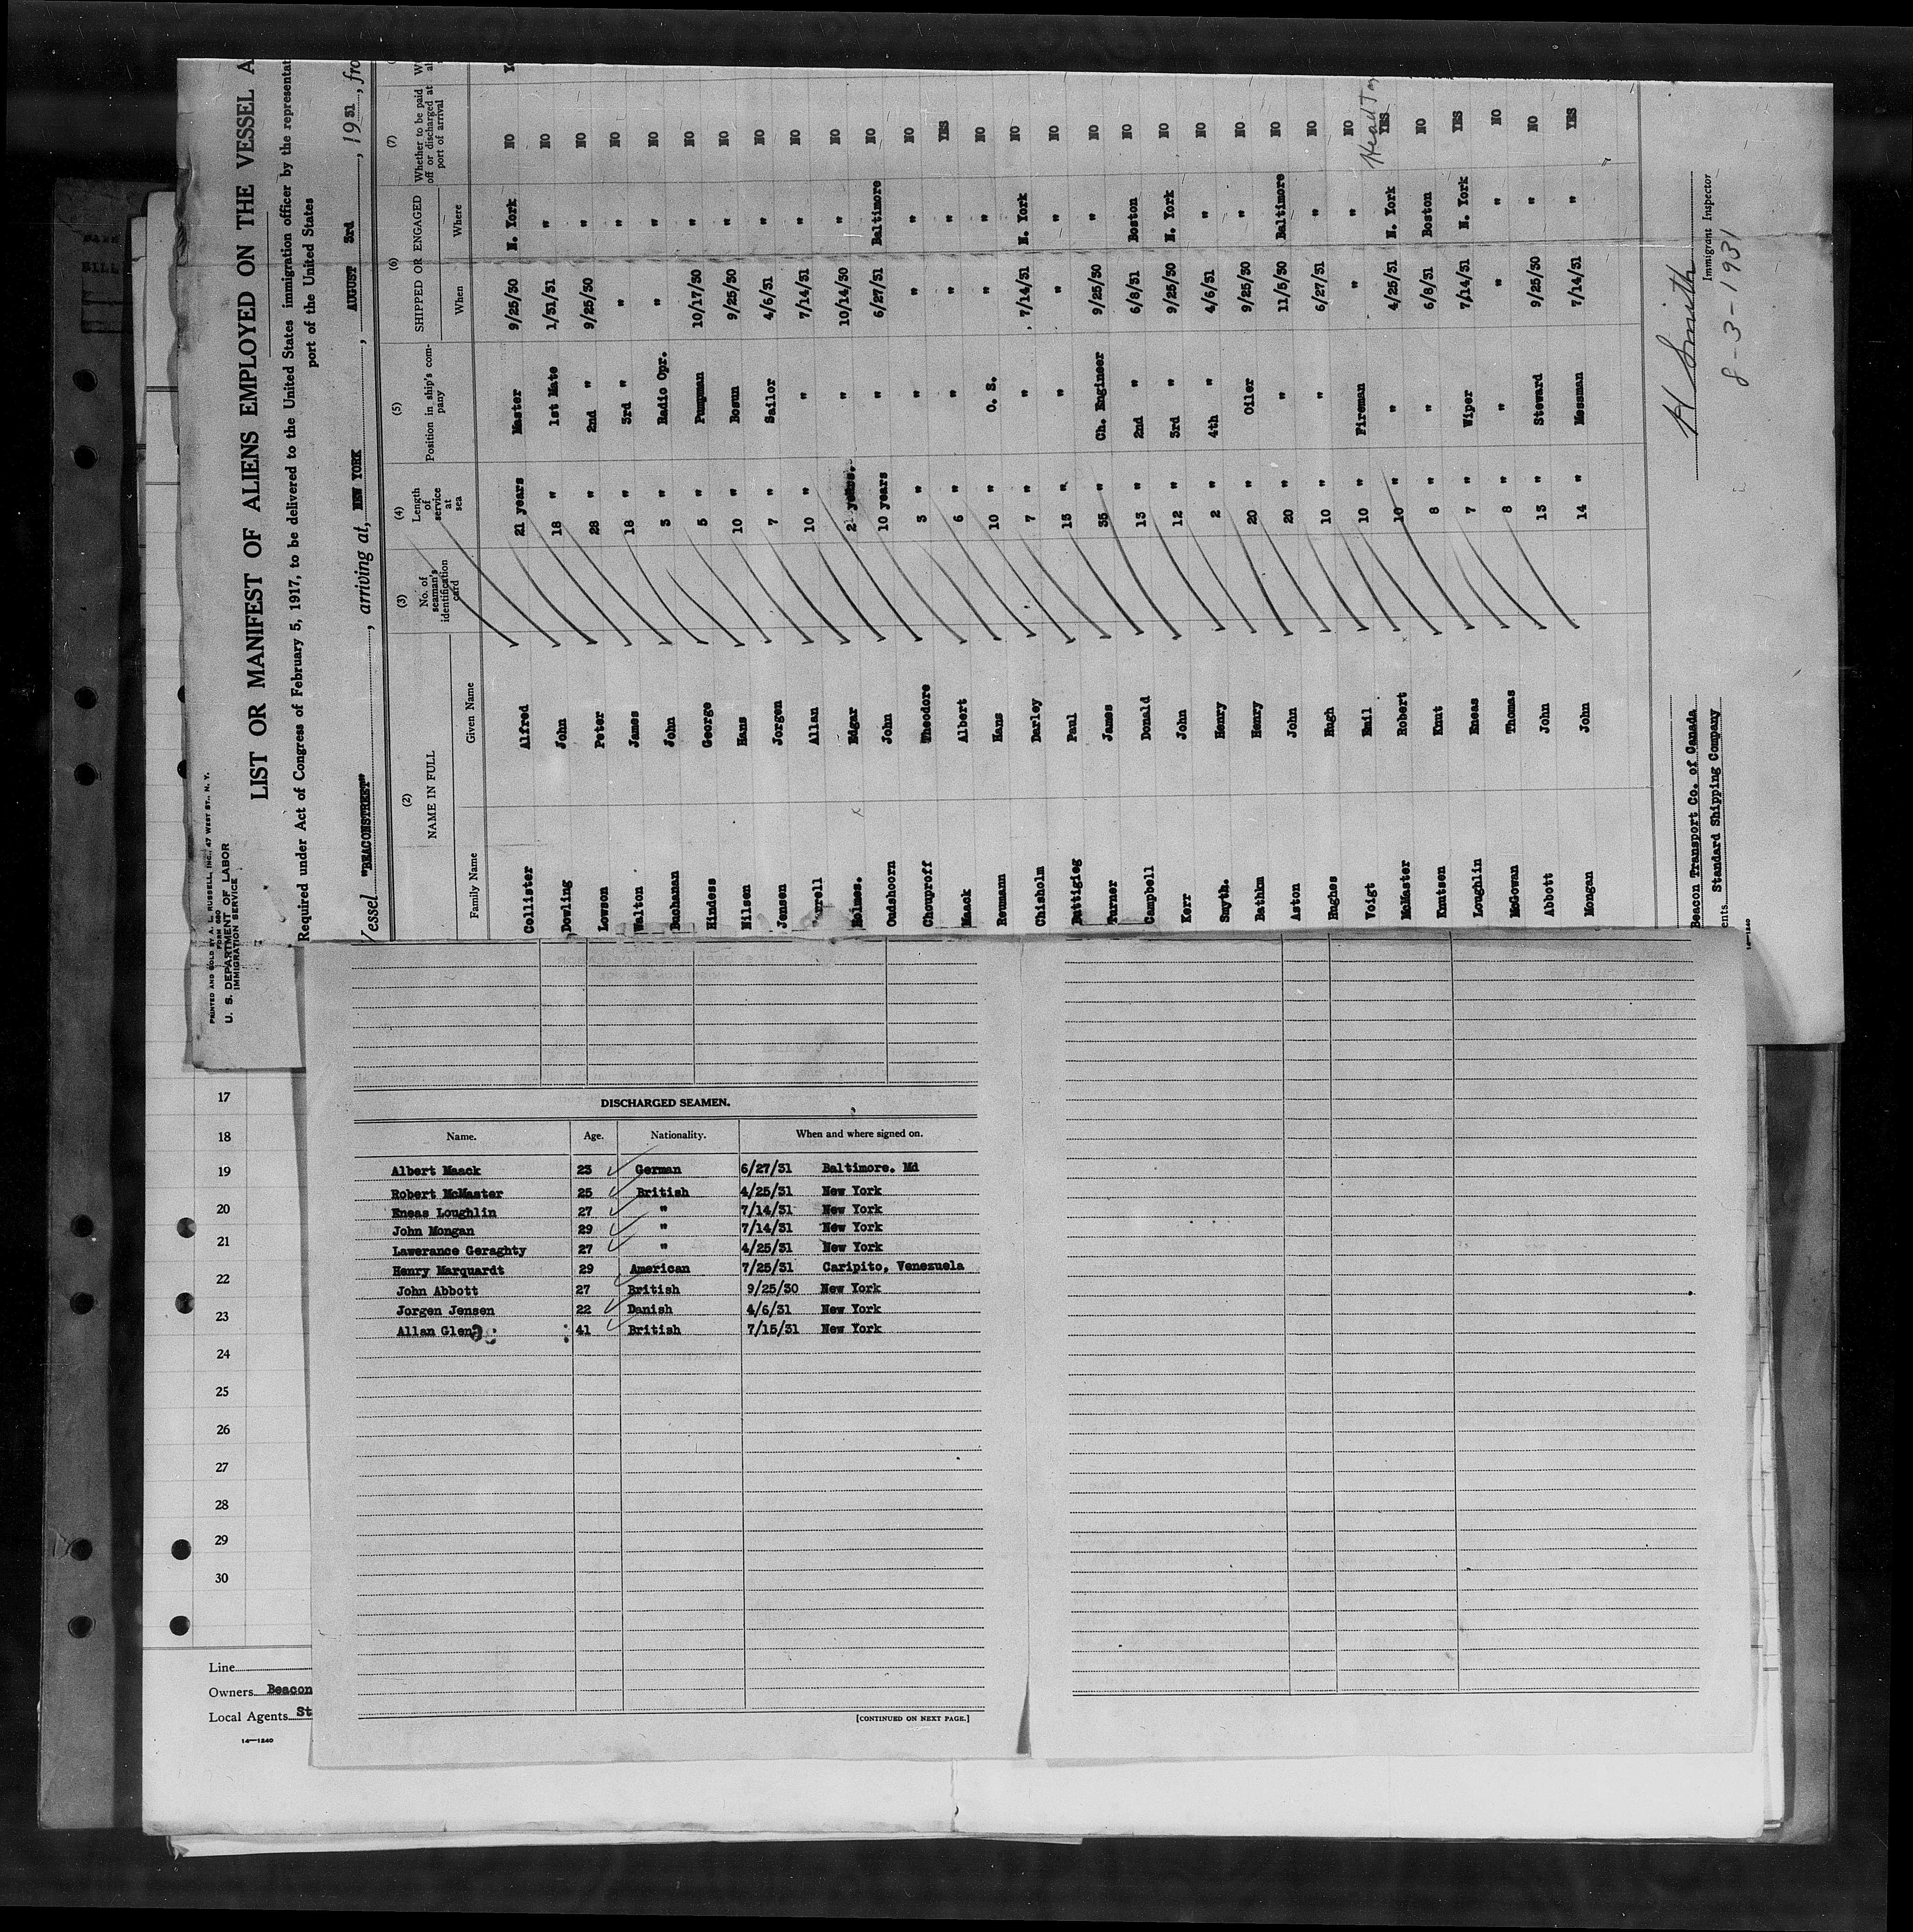 PRINTED AND SOLD BY A. L. RUSSELL, INC., 47 WEST ST., N. Y.
FORM 680
U. S. DEPARTMENT OF LABOR
IMMIGRATION SERVICE
LIST OR MANIFEST OF ALIENS EMPLOYED ON THE VESSEL A
Required under Act of Congress of February 5, 1917, to be delivered to the United States immigration officer by the representat
port of the United States
Vessel "BEACONSTREET", arriving at, NEW YORK, AUGUST 3rd, 1931, fro
(2) (3) (4) (5) (6) (7)
NAME IN FULL
Family Name Given Name
No. of seaman's identification card
Length of service at sea
Position in ship's company
SHIPPED OR ENGAGED
When Where
Whether to be paid off or discharged at port of arrival
Collister Alfred 21 years Master 9/25/30 N. York NO
Dowling John 18 " 1st Mate 1/31/31 " NO
Lowson Peter 28 " 2nd " 9/25/30 " NO
Walton James 18 " 3rd " " " NO
Buchanan John 3 " Radio Opr. " " NO
Hindess George 5 " Pumpman 10/17/30 " NO
Nilsen Hans 10 " Bosun 9/25/30 " NO
Jensen Jorgen 7 " Sailor 4/6/31 " NO
Allan 10 " " 7/14/31 " NO
Holmes. Edgar 2 years. " 10/14/30 " NO
Oudshoorn John 10 years " 6/27/31 Baltimore NO
Chouproff Theodore 3 " " " " NO
Maack Albert 6 " " " " YES
Reumann Hans 10 " O. S. " " NO
Chisholm Darley 7 " " 7/14/31 N. York NO
Buttigieg Paul 15 " " " NO
Turner James 35 " Ch. Engineer 9/25/30 " NO
Campbell Donald 13 " 2nd " 6/8/31 Boston NO
Kerr John 12 " 3rd " 9/25/30 N. York NO
Smyth. Henry 2 " 4th " 4/6/31 " NO
Rathkm Henry 20 " Oiler 9/25/30 " NO
Aston John 20 " " 11/5/30 Baltimore NO
Hughes Hugh 10 " " 6/27/31 " NO
Voigt Emil 10 " Fireman " " NO
McMaster Robert 10 " " 4/25/31 N. York YES
Knutsen Knut 8 " " 6/8/31 Boston NO
Loughlin Eneas 7 " Wiper 7/14/31 N. York YES
McGowan Thomas 8 " " " " NO
Abbott John 13 " Steward 9/25/30 " NO
Mongan John 14 " Messman 7/14/31 " YES
Beacon Transport Co. of Canada
ents Standard Shipping Company
14—1240
H Smith
Immigrant Inspector
8-3-1931
DISCHARGED SEAMEN.
Name. Age. Nationality. When and where signed on.
Albert Maack 23 German 6/27/31 Baltimore. Md
Robert McMaster 25 British 4/25/31 New York
Eneas Loughlin 27 " 7/14/31 New York
John Mongan 29 " 7/14/31 New York
Lawerance Geraghty 27 " 4/25/31 New York
Henry Marquardt 29 American 7/25/31 Caripito, Venezuela
John Abbott 27 British 9/25/30 New York
Jorgen Jensen 22 Danish 4/6/31 New York
Allan Glen 41 British 7/15/31 New York
[CONTINUED ON NEXT PAGE.]
17
18
19
20
21
22
23
24
25
26
27
28
29
30
Line
Owners Beacon
Local Agents St
14—1240